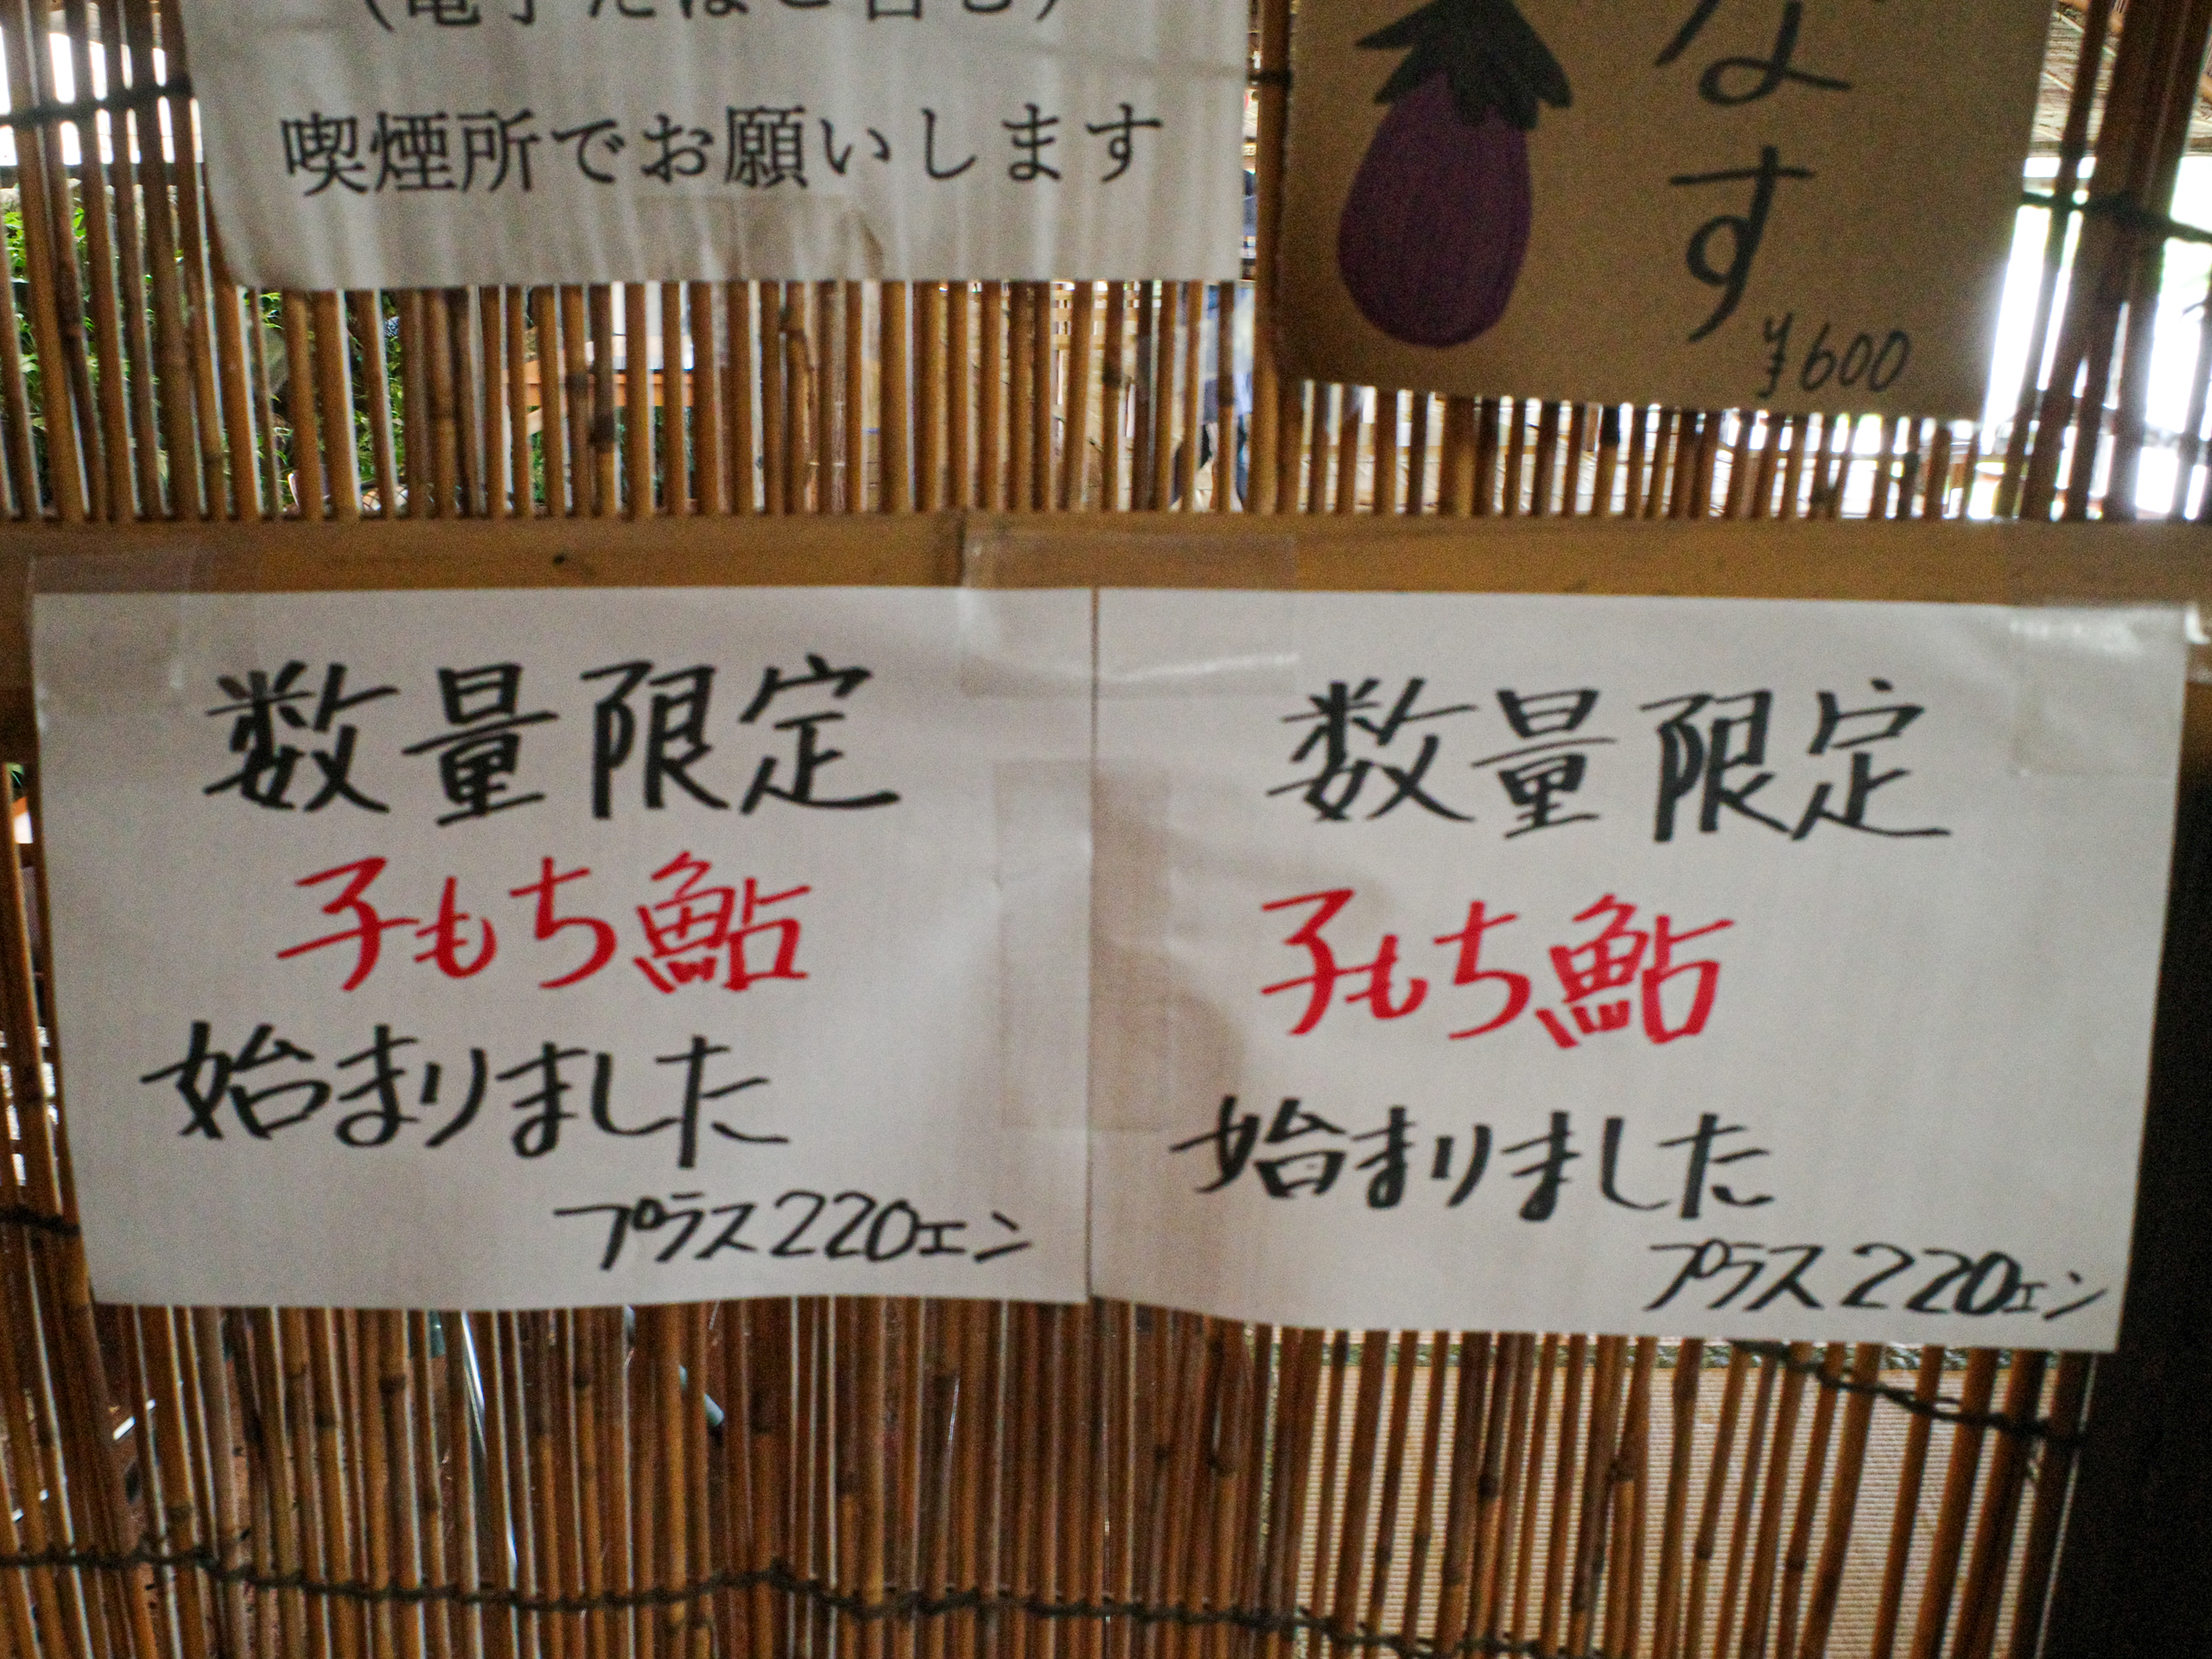 (電子たばこ含む)
喫煙所でお願いします
なす
¥600
数量限定
子もち鮎
始まりました
プラス220エン
数量限定
子もち鮎
始まりました
プラス220エン